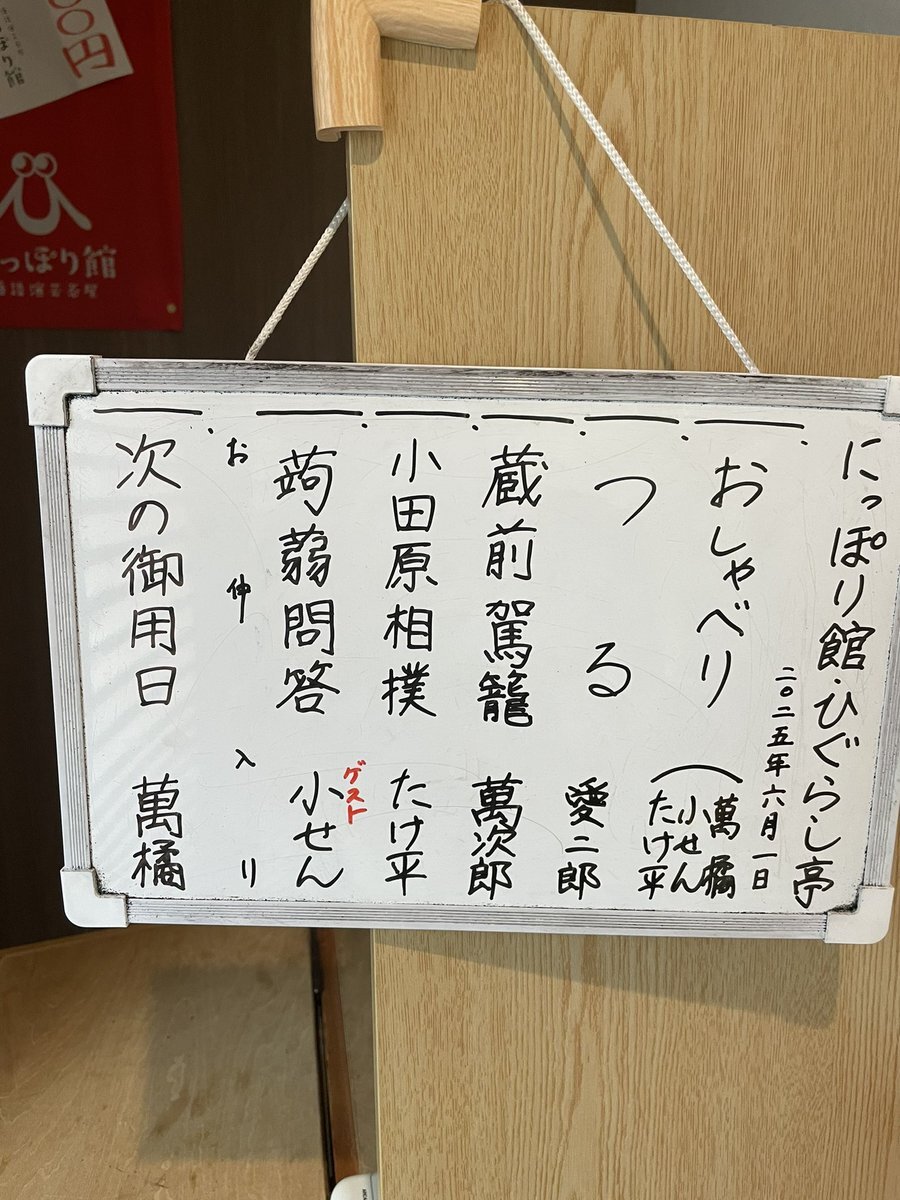 にっぽり館・ひぐらし亭
二〇二五年六月一日
一、おしゃべり 萬橘
小せん
たけ平
一、つる 愛二郎
一、蔵前駕籠 萬次郎
一、小田原相撲 たけ平
一、蒟蒻問答 ゲスト 小せん
お仲入り
一、次の御用日 萬橘
円
ぽり館
っぽり館